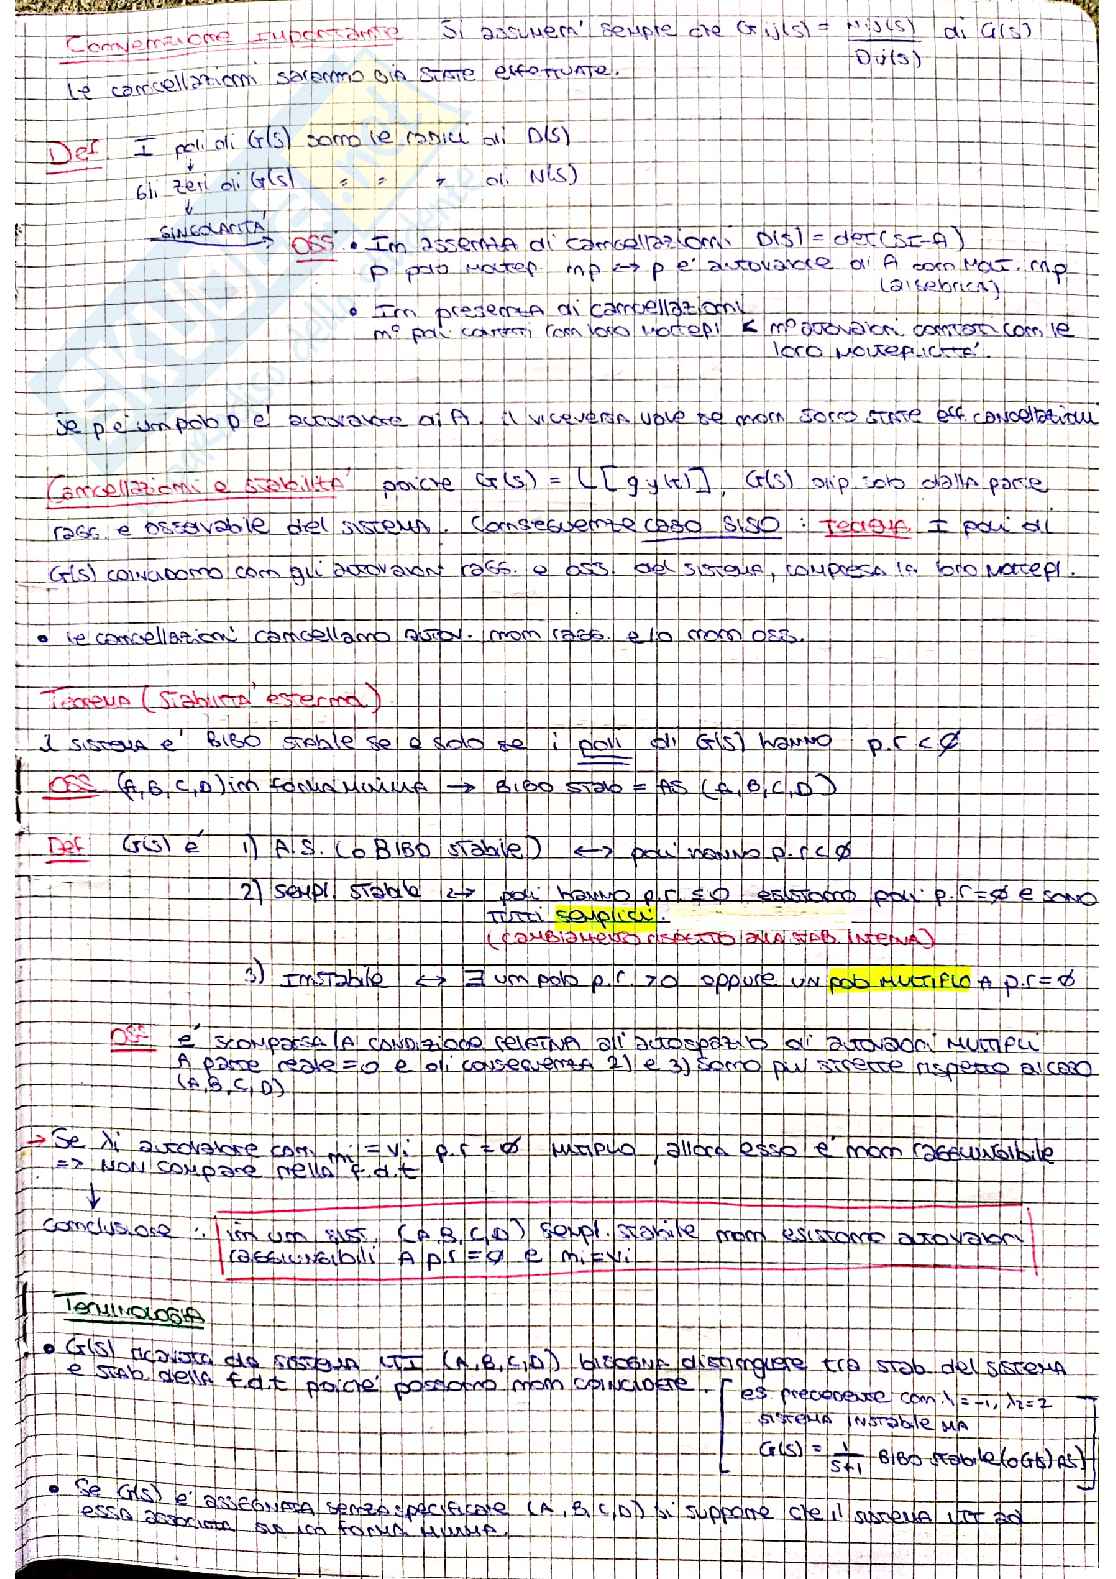 Convenzione importante Si assumerà sempre che Gij(s) = Nij(s)/Dij(s) di G(s)
le cancellazioni saranno già state effettuate.
Def I poli di G(s) sono le radici di D(s)
Gli zeri di G(s) " " " di N(s)
SINGOLARITÀ
OSS • In assenza di cancellazioni D(s) = det(SI-A)
p polo moltep. mp ↔ p è autovalore di A con molt. mp
(algebrica)
• In presenza di cancellazioni
n° poli contati con loro moltepl < n° autovalori contati con le
loro molteplicità.
Se p è un polo p è autovalore di A. Il viceversa vale se non sono state eff. cancellazioni
Cancellazioni e stabilità poiché G(s) = L[gy(t)], G(s) dip. solo dalla parte
ragg. e osservabile del sistema. Conseguenze caso SISO: Teorema I poli di
G(s) coincidono con gli autovalori ragg. e oss. del sistema, compresa la loro moltepl.
• le cancellazioni cancellano autov. non ragg. e/o non oss.
Teorema (stabilità esterna)
Il sistema è BIBO stabile se e solo se i poli di G(s) hanno p.r < 0
OSS (A,B,C,D) in forma minima → BIBO stab = AS (A,B,C,D)
Def G(s) è 1) A.S. (o BIBO stabile) ↔ poli hanno p.r < 0
2) sempl. stabile ↔ poli hanno p.r. ≤ 0 esistono poli p.r = 0 e sono
tutti semplici.
(cambiamento rispetto alla stab. interna)
3) Instabile ↔ ∃ un polo p.r. > 0 oppure un polo multiplo a p.r = 0
OSS è scomparsa la condizione relativa all'autospazio di autovalori multipli
a parte reale = 0 e di conseguenza 2) e 3) sono più strette rispetto al caso
(A,B,C,D)
→ Se λi autovalore con mi = νi p.r = 0 multiplo, allora esso è non raggiungibile
=> non compare nella f.d.t
conclusione: in un sist. (A,B,C,D) sempl. stabile non esistono autovalori
raggiungibili a p.r = 0 e mi = νi
Terminologia
• G(s) ricavata da sistema LTI (A,B,C,D) bisogna distinguere tra stab. del sistema
e stab. della f.d.t poiché possono non coincidere.
es precedente con λ = -1, λ2 = 2
sistema instabile ma
G(s) = 1/(s+1) BIBO stabile (o G(s) AS)
• Se G(s) è assegnata senza specificare (A,B,C,D) si suppone che il sistema LTI ad
essa associata sia in forma minima.